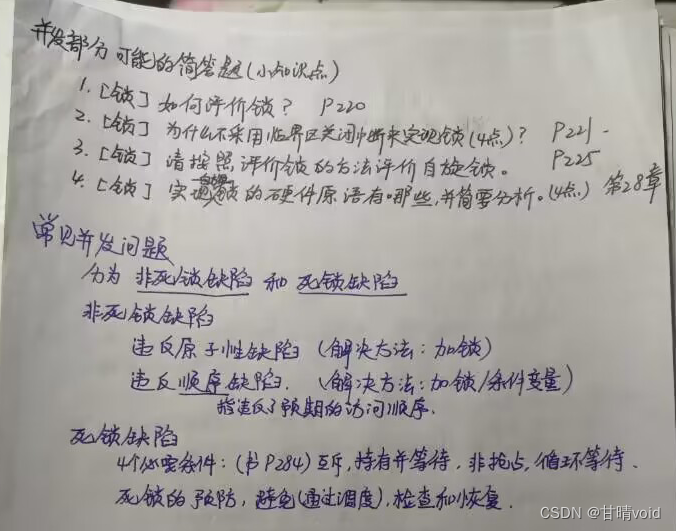 并发部分可能的简答题(小知识点)
1. [锁] 如何评价锁? P220
2. [锁] 为什么不采用临界区关闭中断来实现锁(4点)? P221
3. [锁] 请按照评价锁的方法评价自旋锁。 P225
4. [锁] 实现自旋锁的硬件原语有哪些,并简要分析。(4点) 第28章
常见并发问题
分为 非死锁缺陷 和 死锁缺陷
非死锁缺陷
违反原子性缺陷 (解决方法:加锁)
违反顺序缺陷. (解决方法:加锁/条件变量)
指违反了预期的访问顺序.
死锁缺陷
4个必要条件:(书P284)互斥,持有并等待,非抢占,循环等待.
死锁的预防,避免(通过调度),检查和恢复.
CSDN @甘晴void